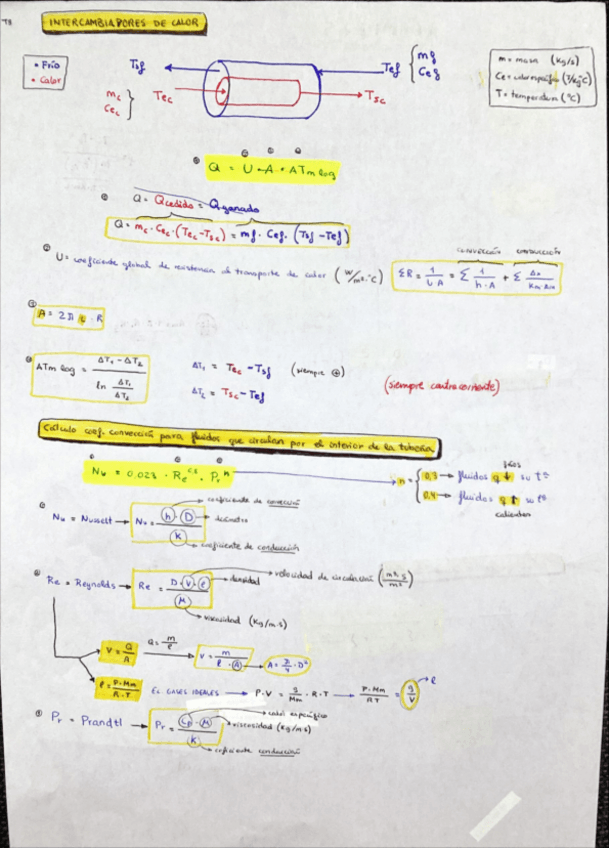 T8
INTERCAMBIADORES DE CALOR
• Frío
• Calor
Tsf
Tef
mf
Cef
mc
Cec
Tec
Tsc
m = masa (Kg/s)
Ce = calor específico (J/Kg°C)
T = temperatura (°C)
Q = U · A · ΔTm log
Q = Qcedido = Qganado
Q = mc · Cec · (Tec - Tsc) = mf · Cef · (Tsf - Tef)
U = coeficiente global de resistencia al transporte de calor (W/m²·°C)
CONVECCIÓN CONDUCCIÓN
ΣR = 1/U·A = Σ 1/h·A + Σ
A = 2π L · R
ΔTm log = ΔT₁ - ΔT₂ / ln ΔT₁/ΔT₂
ΔT₁ = Tec - Tsf (siempre ⊕)
ΔT₂ = Tsc - Tef
(siempre contracorriente)
Cálculo coef. convección para fluidos que circulan por el interior de la tubería
Nu = 0.023 · Re^0,8 · Pr^n
n =
fríos
0,3 → fluidos q ↓ su tª
0,4 → fluidos q ↑ su tª
calientes
Nu = Nusselt → Nu = h · D / K
coeficiente de convección
diámetro
coeficiente de conducción
Re = Reynolds → Re = D · v · ρ / μ
velocidad de circulación
densidad
viscosidad (Kg/m·s)
v = Q/A
Q = m/ρ
v = m / ρ · A
A = π/4 · D²
ρ = P·Mm / R·T
Ec. GASES IDEALES → P·V = g/Mm · R·T → P·Mm / RT = g/V
ρ
Pr = Prandtl → Pr = Cp · μ / K
calor específico
viscosidad (Kg/m·s)
coeficiente conducción